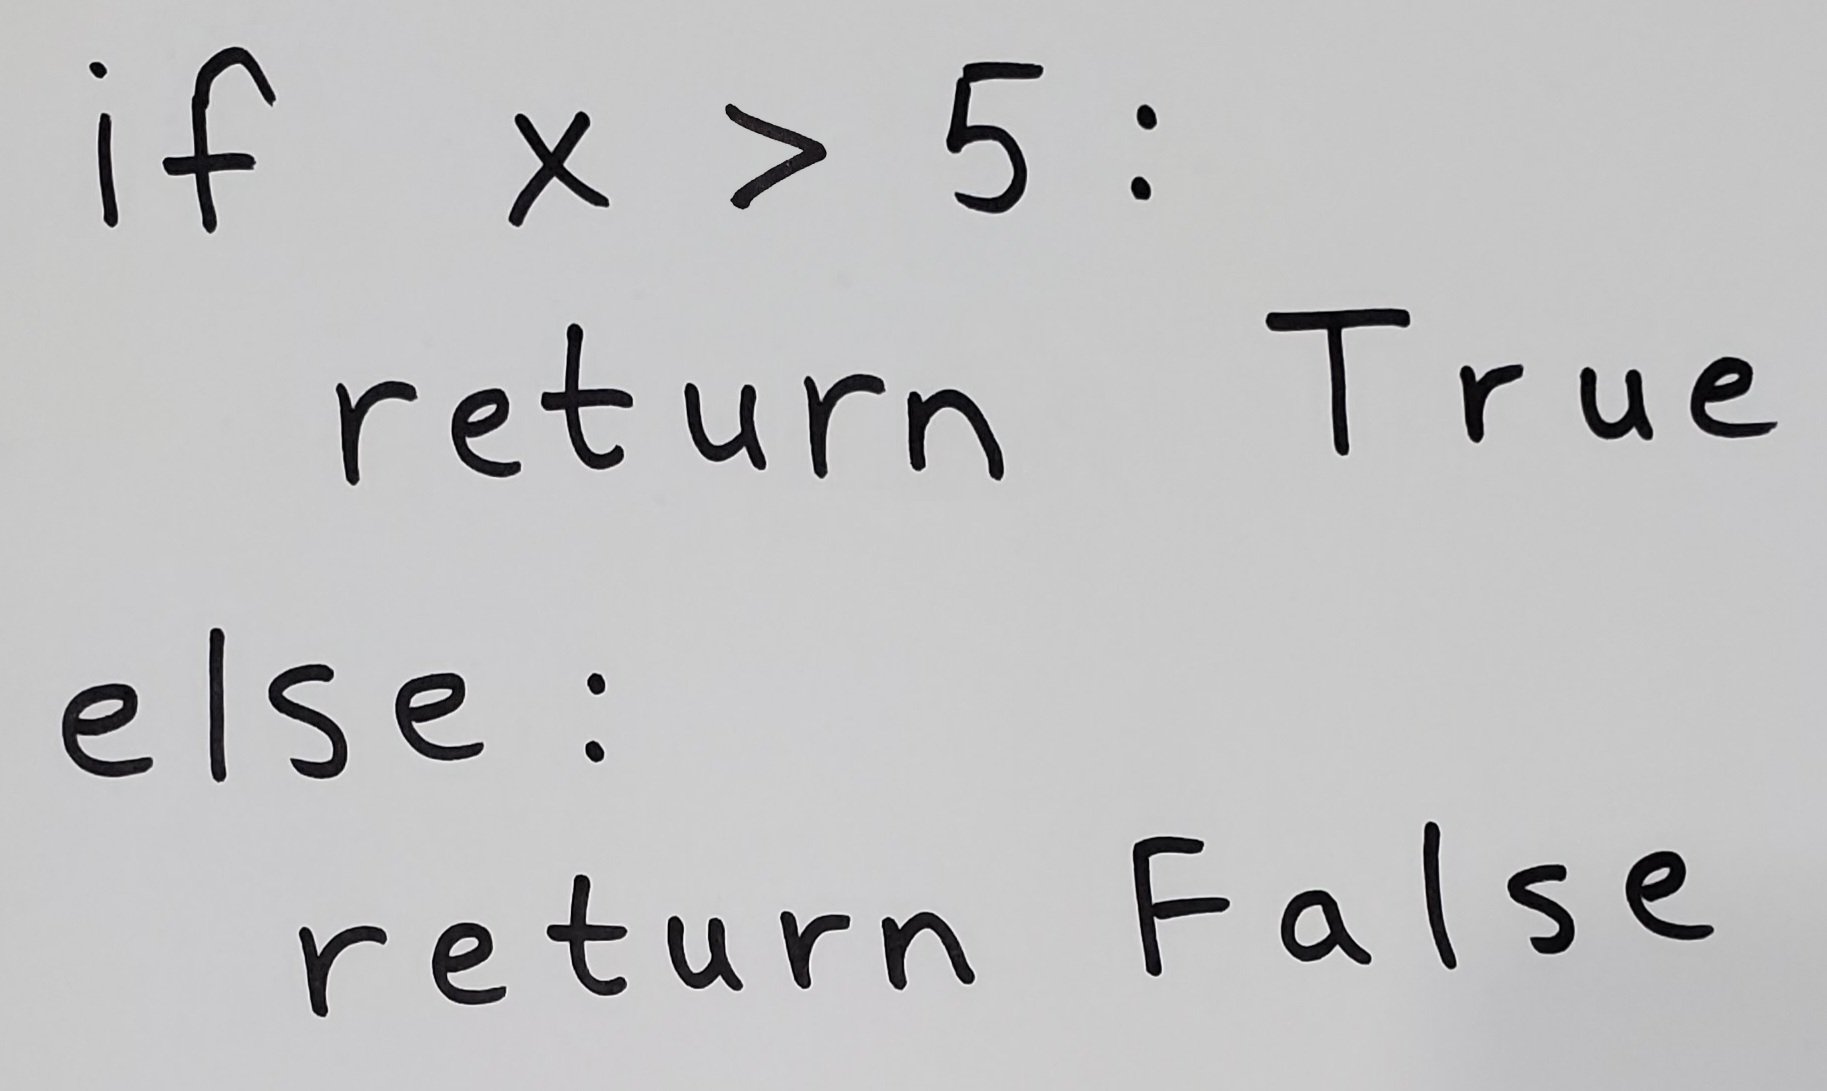 if x > 5:
    return True
else:
    return False